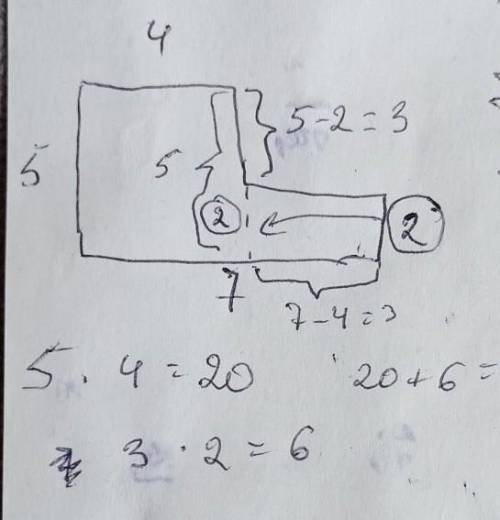 4
5 5 5-2=3
2 2
7
7-4=3
5 · 4 = 20 20+6=
3 · 2 = 6